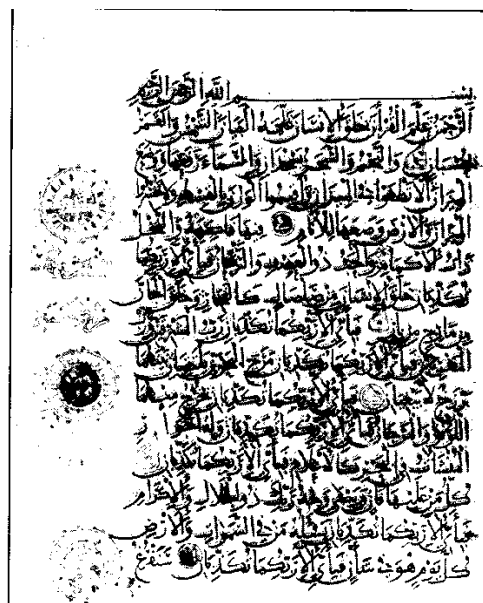 بسم الله الرحمن الرحيم
الرحمن علم القران خلق الانسان علمه البيان الشمس والقمر
بحسبان والنجم والشجر يسجدان والسماء رفعها ووضع
الميزان الا تطغوا في الميزان واقيموا الوزن بالقسط ولا تخسروا
الميزان والارض وضعها للانام فيها فاكهة والنخل
ذات الاكمام والحب ذو العصف والريحان فباي الاء ربكما
تكذبان خلق الانسان من صلصال كالفخار وخلق الجان
من مارج من نار فباي الاء ربكما تكذبان رب المشرقين ورب
المغربين فباي الاء ربكما تكذبان مرج البحرين يلتقيان بينهما
برزخ لا يبغيان فباي الاء ربكما تكذبان يخرج منهما
اللؤلؤ والمرجان فباي الاء ربكما تكذبان وله الجوار
المنشات في البحر كالاعلام فباي الاء ربكما تكذبان
كل من عليها فان ويبقى وجه ربك ذو الجلال والاكرام
فباي الاء ربكما تكذبان يسئله من في السموات والارض
كل يوم هو في شان فباي الاء ربكما تكذبان سنفرغ